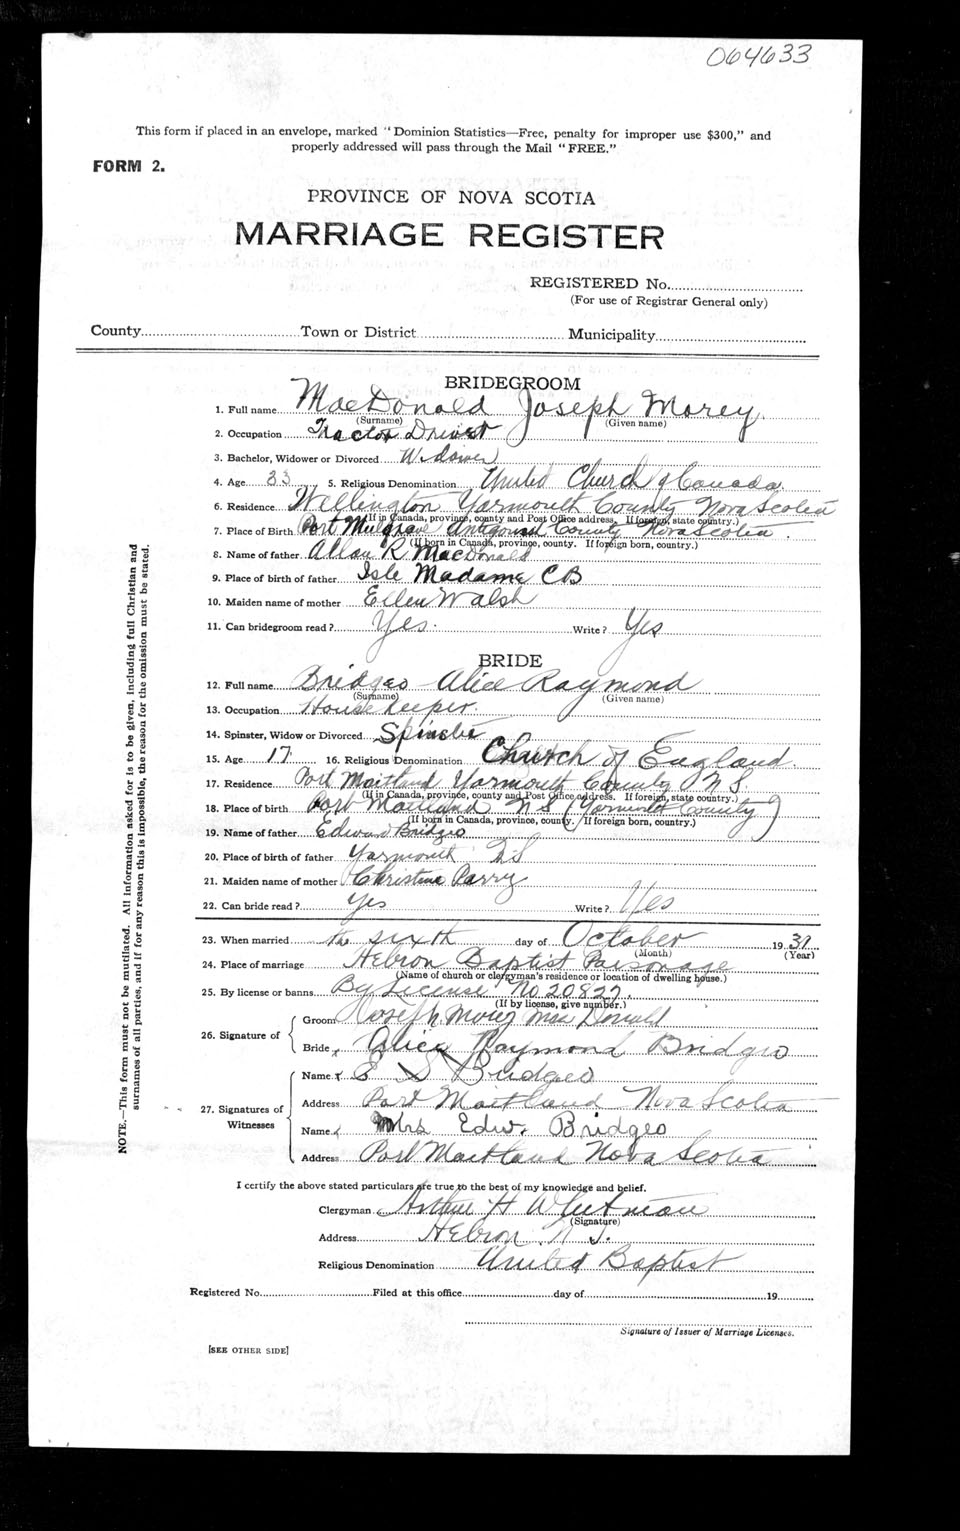 064633
This form if placed in an envelope, marked "Dominion Statistics—Free, penalty for improper use $300," and
properly addressed will pass through the Mail "FREE."
FORM 2.
PROVINCE OF NOVA SCOTIA
MARRIAGE REGISTER
REGISTERED No.
(For use of Registrar General only)
County Town or District Municipality
BRIDEGROOM
1. Full name MacDonald Joseph Morey
(Surname) (Given name)
2. Occupation Tractor Driver
3. Bachelor, Widower or Divorced Widower
4. Age 33 5. Religious Denomination United Church of Canada
6. Residence Wellington Yarmouth County Nova Scotia
(If in Canada, province, county and Post Office address. If foreign, state country.)
7. Place of Birth Port Mulgrave Antigonish County Nova Scotia
(If born in Canada, province, county. If foreign born, country.)
8. Name of father Allan R MacDonald
9. Place of birth of father Isle Madame CB
10. Maiden name of mother Ellen Walsh
11. Can bridegroom read? Yes. Write? Yes
BRIDE
12. Full name Bridges Alice Raymond
(Surname) (Given name)
13. Occupation House Keeper.
14. Spinster, Widow or Divorced Spinster
15. Age 17 16. Religious Denomination Church of England.
17. Residence Port Maitland Yarmouth County N S.
(If in Canada, province, county and Post Office address. If foreign, state country.)
18. Place of birth Port Maitland N S (Yarmouth County)
(If born in Canada, province, county. If foreign born, country.)
19. Name of father Edward Bridges
20. Place of birth of father Yarmouth N S
21. Maiden name of mother Christina Parry
22. Can bride read? Yes Write? Yes
23. When married the sixth day of October 1937
(Month) (Year)
24. Place of marriage Hebron Baptist Parsonage
(Name of church or clergyman's residence or location of dwelling house.)
25. By license or banns By License No 20827.
(If by license, give number.)
26. Signature of Groom Joseph Morey MacDonald
Bride x Alice Raymond Bridges
27. Signatures of Witnesses
Name x E S Bridges
Address Port Maitland Nova Scotia
Name x Mrs Edw. Bridges
Address Port Maitland Nova Scotia
I certify the above stated particulars are true to the best of my knowledge and belief.
Clergyman Arthur H Whitman
(Signature)
Address Hebron N S.
Religious Denomination United Baptist
Registered No. Filed at this office day of 19
Signature of Issuer of Marriage Licenses.
[SEE OTHER SIDE]
NOTE.—This form must not be mutilated. All information asked for is to be given, including full Christian and
surnames of all parties, and if for any reason this is impossible, the reason for the omission must be stated.